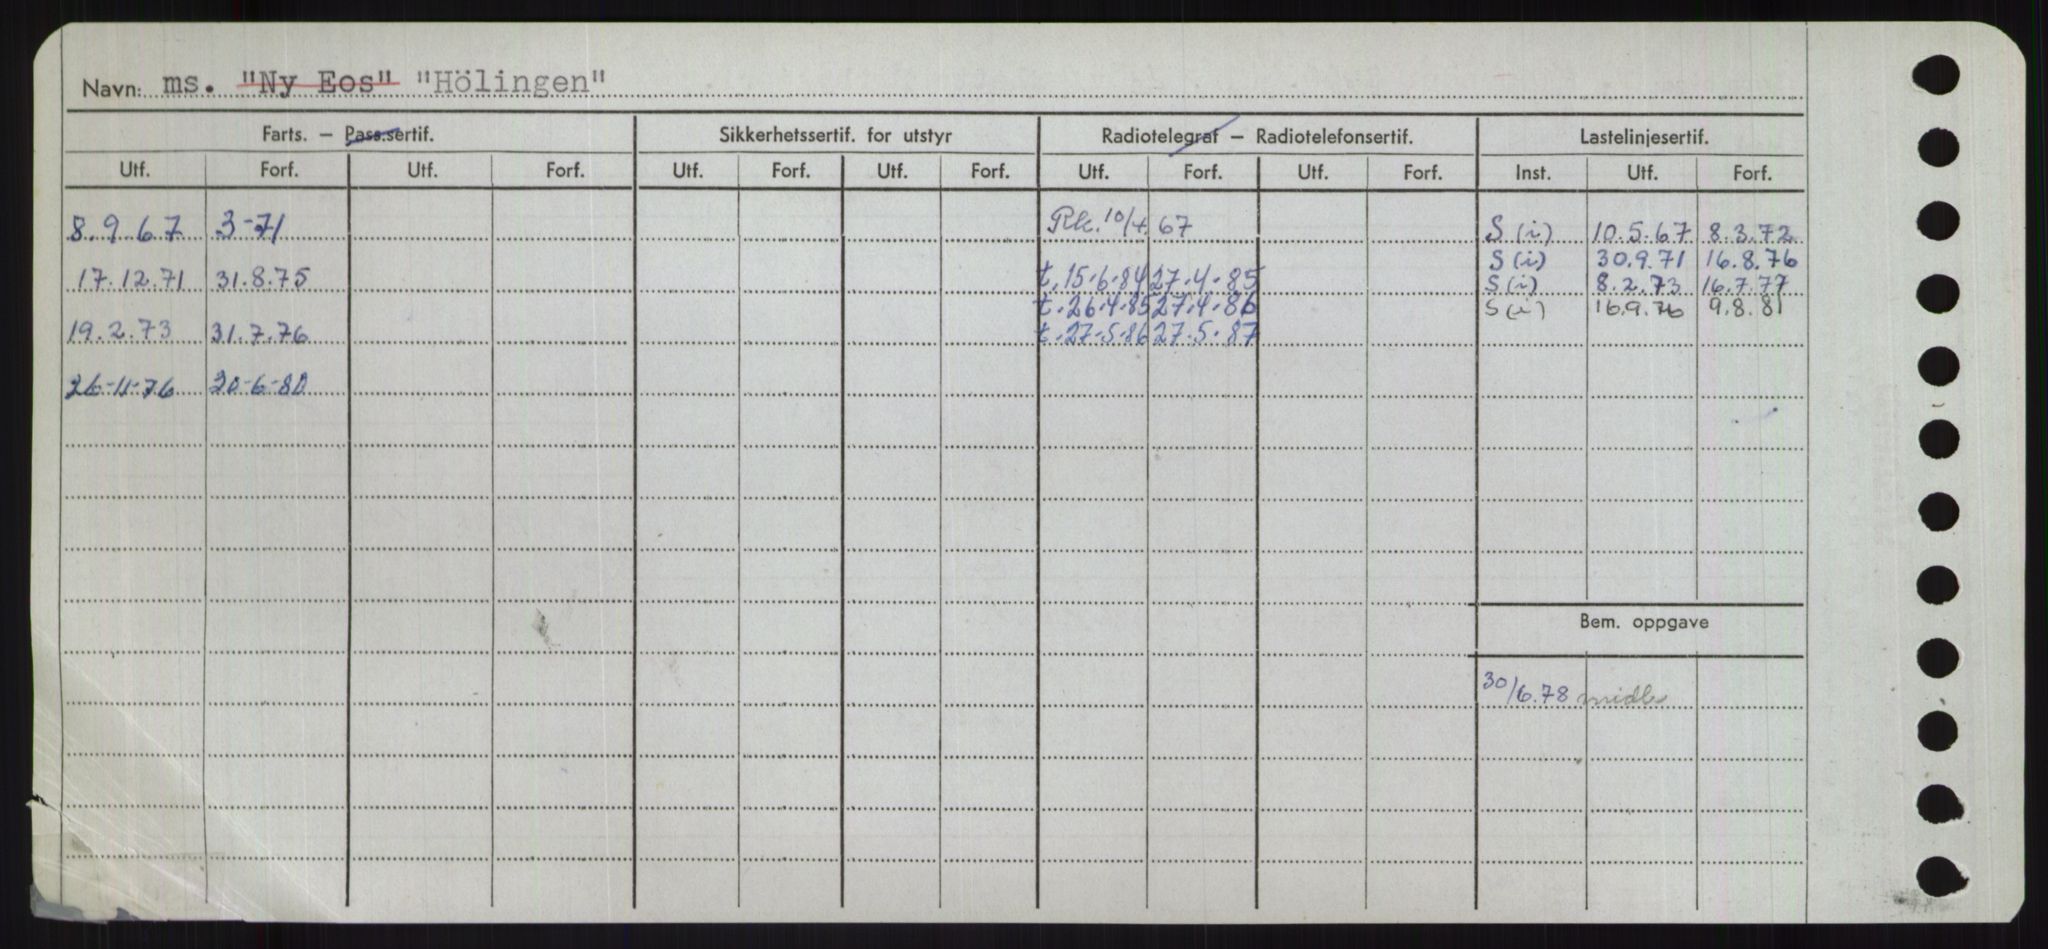 Navn: ms. "Ny Eos" "Hölingen"
Farts. – Pass.sertif. Sikkerhetssertif. for utstyr Radiotelegraf – Radiotelefonsertif. Lastelinjesertif.
Utf. Forf. Utf. Forf. Utf. Forf. Utf. Forf. Utf. Forf. Utf. Forf. Inst. Utf. Forf.
8.9.67 3-71 10/4.67 S (i) 10.5.67 8.3.72
S (i) 30.9.71 16.8.76
17.12.71 31.8.75 t.15-6-84 27-4-85 S (i) 8.2.73 16.7.77
t.26-4-85 27-4-86 S (i) 16.9.76 9.8.81
19.2.73 31.7.76 t.27-5-86 27-5-87
26-11-76 30-6-80
Bem. oppgave
30/6.78 midl